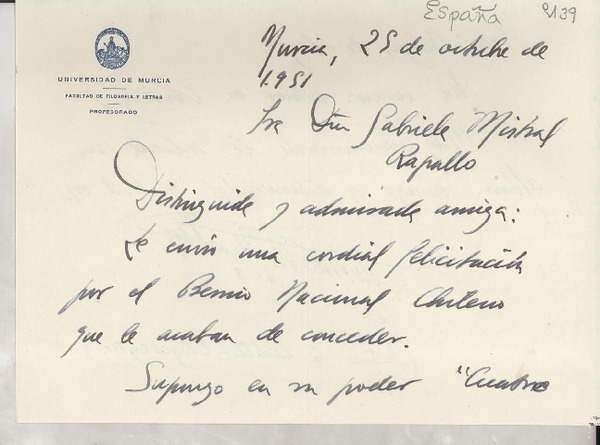 España
9139
Murcia, 25 de octubre de
1951
UNIVERSIDAD DE MURCIA
FACULTAD DE FILOSOFIA Y LETRAS
PROFESORADO
Sra Dña Gabriela Mistral
Rapallo
Distinguida y admirada amiga:
Le envío una cordial felicitación
por el Premio Nacional Chileno
que le acaban de conceder.
Supongo en su poder "Cuatro